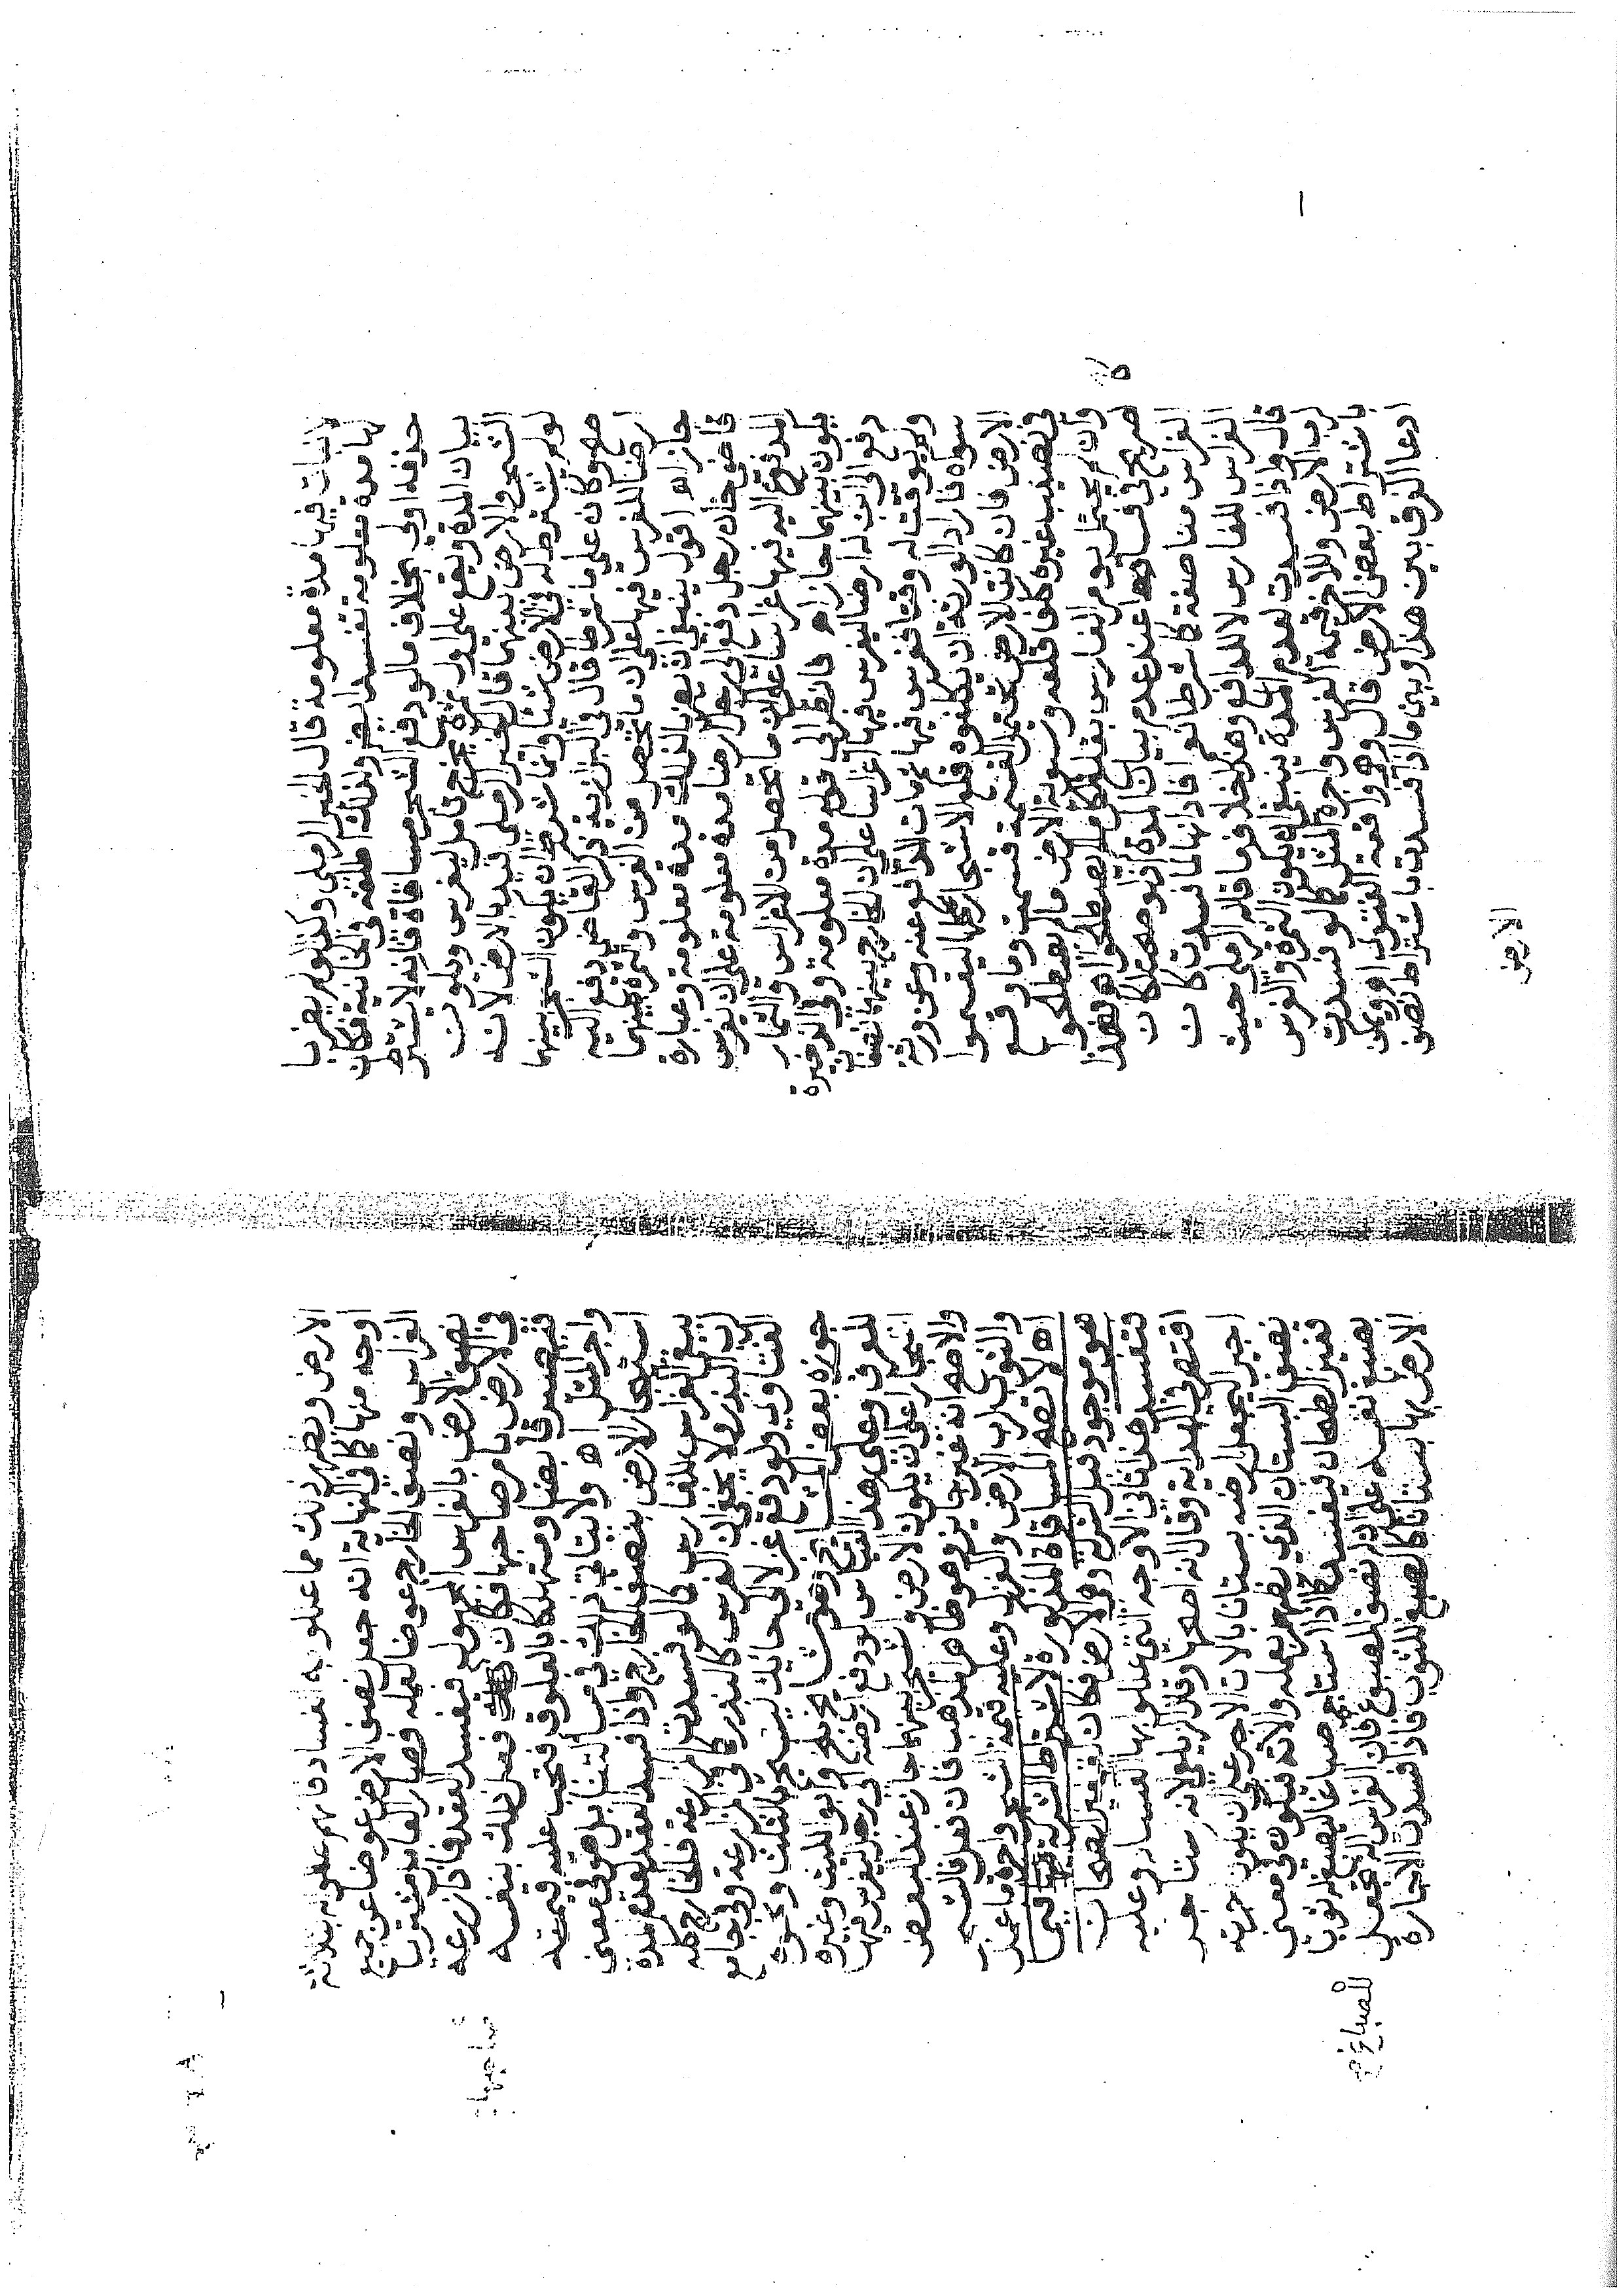 لانبات فيها مدة معلومة قال الخير الرملي وكذا لو لم يضربا
لها مدة معلومة تفسد ولذلك اطلقه في الخانية فكان
حذفه اولى بخلاف مالو دفع الشجر مساقاة فانه لا يشترط
بيان المدة ويقع على اول ثمرة تخرج تأمل ليغرس ويكون
الشجر والارض بينهما قال الخير الرملي قيد بالارض لانه
لو لم يشترط له في الارض شيئا وانما شرط ان يكون الشجر بينهما
صح وكان على ما شرطا قال في البزازية ذكر القاضي دفع اليه
ارضا للغرس فيها على ان ما يحصل من الغرس والثمرة بينهما
جاز اه اقول ينبغي ان يقيد ذلك مدة معلومة وعبارة
قاضي خان رجل دفع الى رجل ارضا مدة معلومة على ان يغرس
المدفوع اليه فيها غراسا على ان ما تحصل من الاغراس والثمار
يكون بينهما جاز اه فانظر الى قوله مدة معلومة وفي الذخيرة
دفع الى ابن له ارضا ليغرس فيها اغراسا على ان الخارج بينهما نصفان
ولم يوقت له وقتا فغرس فيها ثم مات الدافع عنه وعن ورثة
سواه فاراد الورثة ان يكلفوه قلع الاشجار كلها ليقسموا
الارض فان كانت الارض تحتمل القسمة قسمت وما وقع
في نصيب غيره كلف قلعه وتسوية الارض ما لم يصطلحوا
وان لم تحتمل يؤمر الغارس بقلع الكل ما لم يصطلحوا اه فهذا
صريح في فسادها عند عدم بيان المدة اذ لو صح لكان
الغراس مناصفة كما شرطا نعم افاد انها لما فسدت كان
الغراس للغارس لا للدافع وهذا خلاف ما قاله الرملي حيث
قال واذا فسدت لعدم المدة ينبغي ان يكون الثمر والغرس
لرب الارض وللاخر قيمة الغرس واجرة المثل كما لو فسدت
باشتراط بعض الارض قال وهي واقعة الفتوى اه ويمكن
ادعا الفرق بين هذا وبين ما اذا فسدت باشتراط نصف
الارض
الارض ذلك مما عللوا به الفساد فانهم عللوه بثلاثة
اوجه منها كما في النهاية انه جعل نصف الارض عوضا عن جميع
الغراس ونصف الخارج عوضا لعمله فصار العامل مشتريا
نصف الارض بالغراس المجهول فيفسد العقد فاذا زرعه
في الارض بامر صاحبها فكان فعل ذلك بنفسه
صاحبها
فيصير قابضا ومستهلكا بالعلوق فتجب عليه قيمته
واجر المثل اه ولا يتاتى ذلك في مسألتنا بل هو في معنى
استئجار الارض بنصف الخارج واذا فسد العقد لعدم المدة
يبقى الغراس للغارس كما لو فسدت المزارعة فالخارج كله
لرب البذر ولا يخفى ان الغرس كالبذر كما في المزارعة وفي جامع
الفتاوى ولو دفع غزلا الى حائك لينسجه بالثلث ونحوه
جوزه بعض المشايخ وابو الليث وغيره
للعرف وعلى هذا القياس لو دفع ارضه الى رجل ليغرس فيها
اشجارا على ان يكون الارض والشجر بينهما جاز عند البعض
والاصح انه غير جائز وهو ظاهر المذهب فان فالشجر
والثمر لرب الارض وعليه قيمة الشجر واجرة ما عمل
اه لا تصح المساقاة المذكورة لاشتراط الشركة فيما
هو موجود قبل الشركة وهي الارض فكان كقفيز الطحان
فتفسد هذا ثاني الاوجه التي عللوا بها الفساد وعليه
اقتصر في الهداية وقال انه اصحها وقال الزيلعي لانه استاجر
اجيرا ليجعل ارضه بستانا بالات الاجير على ان يكون اجرته
نصف البستان الذي يظهر بعمله والاته فيكون في معنى
قفيز الطحان فيفسد كما اذا استاجر صباغا ليصبغ له ثوبا
بصبغ نفسه على ان نصف المصبوغ فان الغراس الة تجعل
للصباغ صح
الارض بها بستانا كالصبغ للثوب فاذا فسدت الاجارة